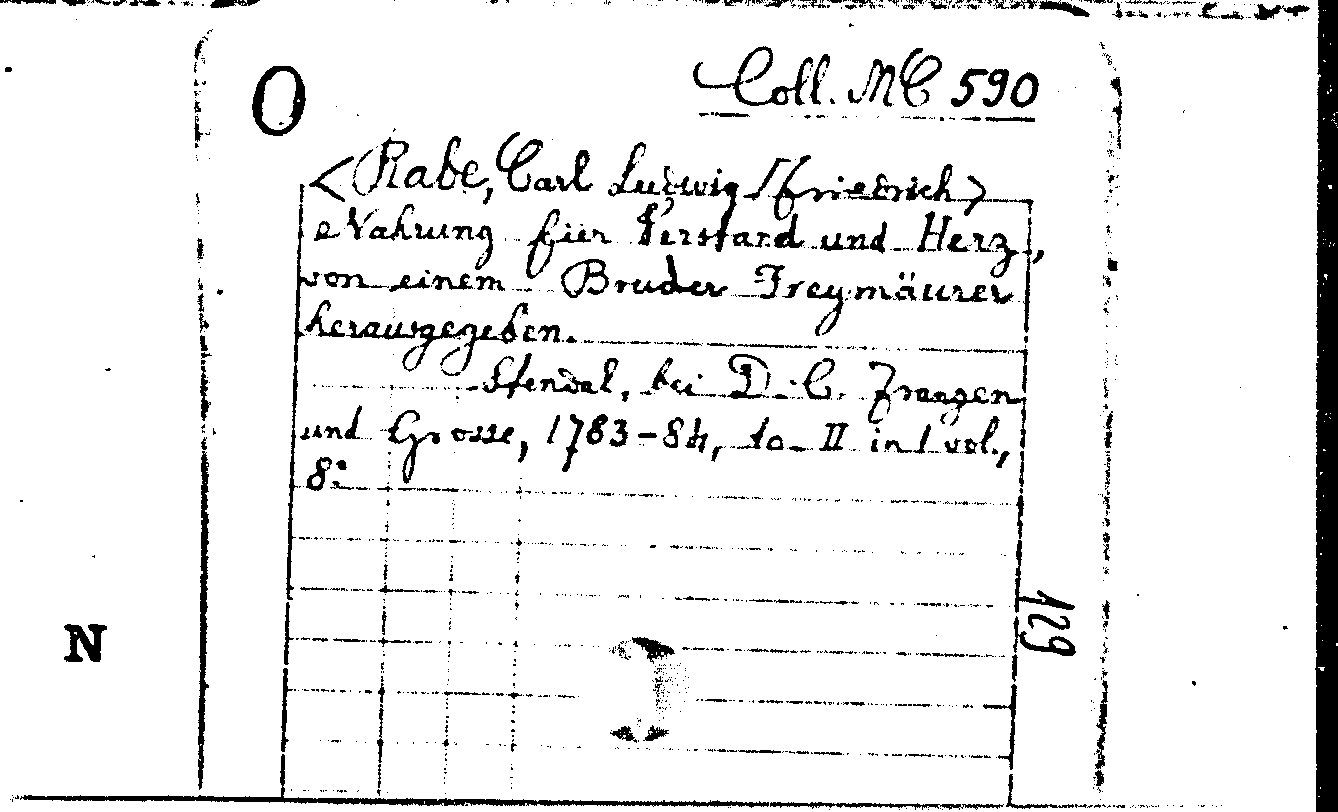 O
Coll. MC 590
<Rabe, Carl Ludwig Friedrich>
Nahrung für Verstand und Herz,
von einem Bruder Freymäurer
herausgegeben.
Stendal, bei D. C. Franzen
und Grosse, 1783-84, to II in 1 vol.,
8°
129
N